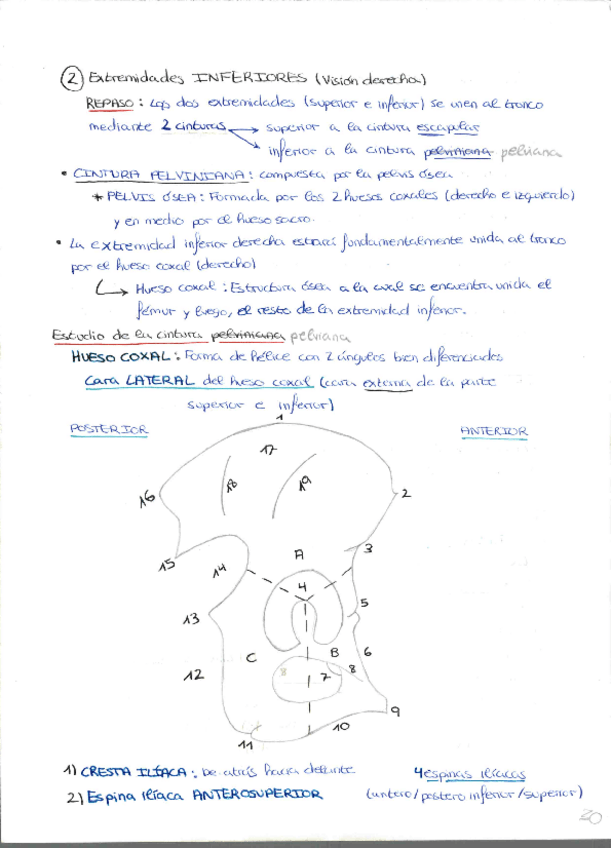 2 Extremidades INFERIORES (Visión derecha)
REPASO: Las dos extremidades (superior e inferior) se unen al tronco
mediante 2 cinturas → superior a la cintura escapular
inferior a la cintura pelviniana pelviana
• CINTURA PELVINIANA: compuesta por la pelvis ósea
* PELVIS ÓSEA: Formada por los 2 huesos coxales (derecho e izquierdo)
y en medio por el hueso sacro.
• La extremidad inferior derecha estará fundamentalmente unida al tronco
por el hueso coxal (derecho)
↳ Hueso coxal: Estructura ósea a la cual se encuentra unida el
fémur y luego, el resto de la extremidad inferior.
Estudio de la cintura pelviniana pelviana
HUESO COXAL: Forma de hélice con 2 ángulos bien diferenciados
Cara LATERAL del hueso coxal (cara externa de la parte
superior e inferior)
POSTERIOR
ANTERIOR
1
17
16
18
19
2
A
3
15
14
4
5
13
C
B
6
12
8
7
8
9
10
11
1) CRESTA ILÍACA: De atrás hacia delante
4 espinas ilíacas
2) Espina ilíaca ANTEROSUPERIOR
(antero/postero inferior/superior)
20